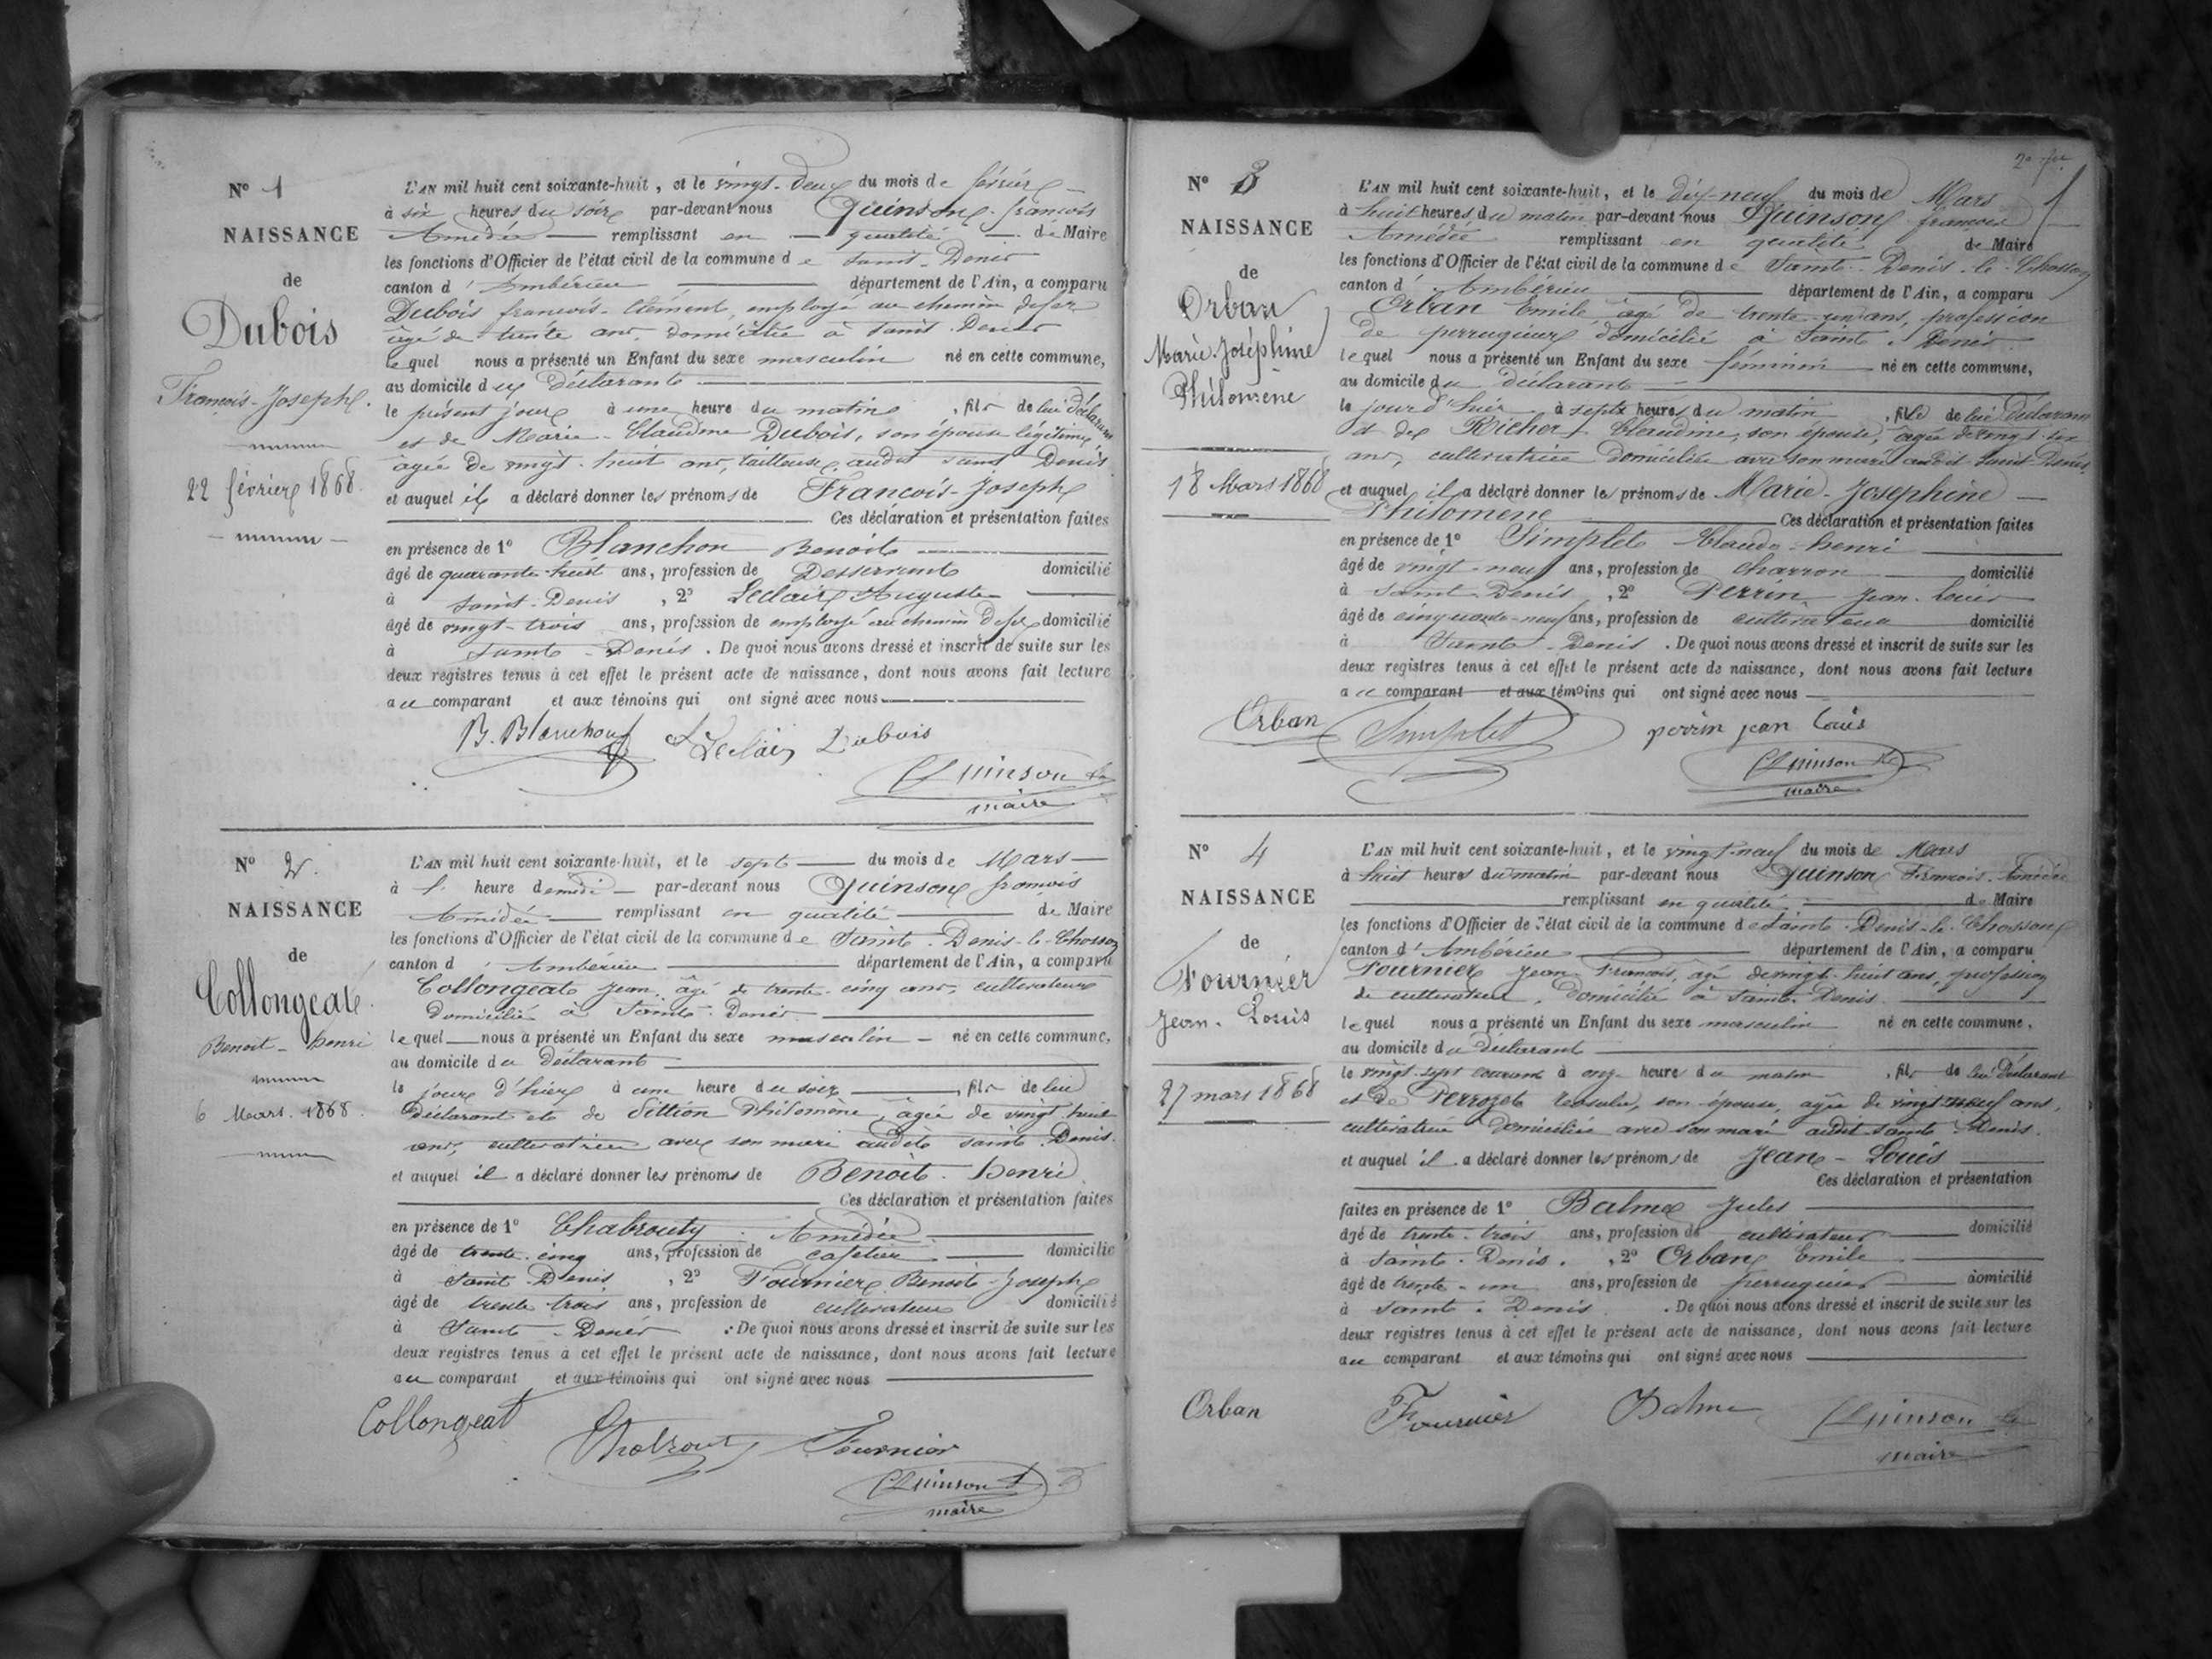 N° 1
NAISSANCE
de
Dubois
François-Joseph.
22 février 1868.
L'AN mil huit cent soixante-huit, et le vingt-deux du mois de février
à six heures du soir par-devant nous Quinson françois
Amédée remplissant en qualité de Maire
les fonctions d'Officier de l'état civil de la commune de Saint-Denis
canton d'Ambérieu département de l'Ain, a comparu
Dubois françois-Clément, employé au chemin de fer
âgé de trente ans, domicilié à Saint-Denis
lequel nous a présenté un Enfant du sexe masculin né en cette commune,
au domicile du Déclarant
le présent jour à une heure du matin, fils de lui Déclarant
et de Marie-Claudine Dubois, son épouse légitime,
âgée de vingt-huit ans, tailleuse, audit Saint Denis
et auquel il a déclaré donner les prénoms de François-Joseph
Ces déclaration et présentation faites
en présence de 1° Blanchon Benoit
âgé de quarante-huit ans, profession de Desservant domicilié
à Saint-Denis, 2° Leclair Auguste
âgé de vingt-trois ans, profession de employé au chemin de fer domicilié
à Saint-Denis. De quoi nous avons dressé et inscrit de suite sur les
deux registres tenus à cet effet le présent acte de naissance, dont nous avons fait lecture
au comparant et aux témoins qui ont signé avec nous
B. Blanchon Leclair Dubois
Quinson
maire
N° 2.
NAISSANCE
de
Collongeat.
Benoit-henri
6 Mars. 1868.
L'AN mil huit cent soixante-huit, et le sept du mois de Mars
à heure de midi par-devant nous Quinson françois
Amédée remplissant en qualité de Maire
les fonctions d'Officier de l'état civil de la commune de Saint-Denis-le-Chosson
canton d'Ambérieu département de l'Ain, a comparu
Collongeat Jean, âgé de trente-cinq ans, cultivateur
domicilié à Saint-Denis
lequel nous a présenté un Enfant du sexe masculin né en cette commune,
au domicile du Déclarant
le jour d'hier à une heure du soir, fils de lui
Déclarant et de Philomène, âgée de vingt huit
ans, cultivatrice avec son mari audit Saint-Denis.
et auquel il a déclaré donner les prénoms de Benoit-henri
Ces déclaration et présentation faites
en présence de 1° Amédée
âgé de trente-cinq ans, profession de cafetier domicilié
à Saint-Denis, 2° Fournier Benoit-Joseph
âgé de trente trois ans, profession de cultivateur domicilié
à Saint-Denis. De quoi nous avons dressé et inscrit de suite sur les
deux registres tenus à cet effet le présent acte de naissance, dont nous avons fait lecture
au comparant et aux témoins qui ont signé avec nous
Collongeat Fournier
Quinson
maire
N° 3
NAISSANCE
de
Orban
Marie-Joséphine
Philomène
18 Mars 1868
L'AN mil huit cent soixante-huit, et le dix-neuf du mois de Mars
à huit heures du matin par-devant nous Quinson françois
Amédée remplissant en qualité de Maire
les fonctions d'Officier de l'état civil de la commune de Saint-Denis-le-Chosson
canton d'Ambérieu département de l'Ain, a comparu
Orban Emile âgé de trente-un ans, profession
de perruquier domicilié à Saint-Denis
lequel nous a présenté un Enfant du sexe féminin né en cette commune,
au domicile du déclarant
le jour d'hier à sept heures du matin, fille de lui Déclarant
et de Richert Claudine, son épouse, âgée de vingt-six
ans, cultivatrice domiciliée avec son mari audit Saint-Denis
et auquel il a déclaré donner les prénoms de Marie-Josephine
Philomene Ces déclaration et présentation faites
en présence de 1° Simplet Claude-henri
âgé de vingt-neuf ans, profession de charron domicilié
à Saint-Denis, 2° Perrin Jean-Louis
âgé de cinquante-neuf ans, profession de cultivateur domicilié
à Saint-Denis. De quoi nous avons dressé et inscrit de suite sur les
deux registres tenus à cet effet le présent acte de naissance, dont nous avons fait lecture
au comparant et aux témoins qui ont signé avec nous
Orban Simplet perrin jean louis
Quinson
maire
N° 4
NAISSANCE
de
Fournier
Jean-Louis
27 mars 1868
L'AN mil huit cent soixante-huit, et le vingt-neuf du mois de Mars
à huit heures du matin par-devant nous Quinson François-Amédée
remplissant en qualité de Maire
les fonctions d'Officier de l'état civil de la commune de Saint-Denis-le-Chosson
canton d'Ambérieu département de l'Ain, a comparu
Fournier Jean François, âgé de vingt-huit ans, profession
de cultivateur, domicilié à Saint-Denis
lequel nous a présenté un Enfant du sexe masculin né en cette commune,
au domicile du déclarant
le vingt-sept courant à onze heures du matin, fils de lui Déclarant
et de Perrozet, son épouse, âgée de vingt neuf ans,
cultivatrice domiciliée avec son mari audit Saint-Denis.
et auquel il a déclaré donner les prénoms de Jean-Louis
Ces déclaration et présentation
faites en présence de 1° Balme Jules
âgé de trente-trois ans, profession de cultivateur domicilié
à Saint-Denis, 2° Orban Emile
âgé de trente-un ans, profession de perruquier domicilié
à Saint-Denis. De quoi nous avons dressé et inscrit de suite sur les
deux registres tenus à cet effet le présent acte de naissance, dont nous avons fait lecture
au comparant et aux témoins qui ont signé avec nous
Orban Fournier Balme Quinson
maire